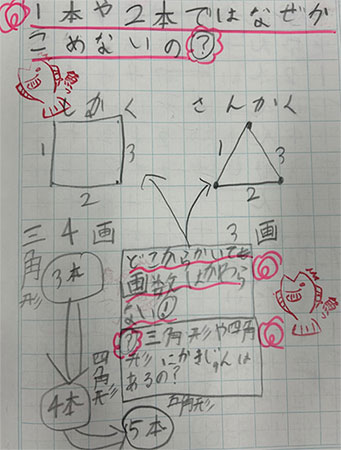 1本や2本ではなぜか
こめないの?
しかく
さんかく
1
3
2
1
3
2
4画
3画
三角形
3本
どこからかいても
画数はかわら
ない!
?三角形や四角
形にかぎじゅんは
あるの?
四角形
4本
5本
五角形